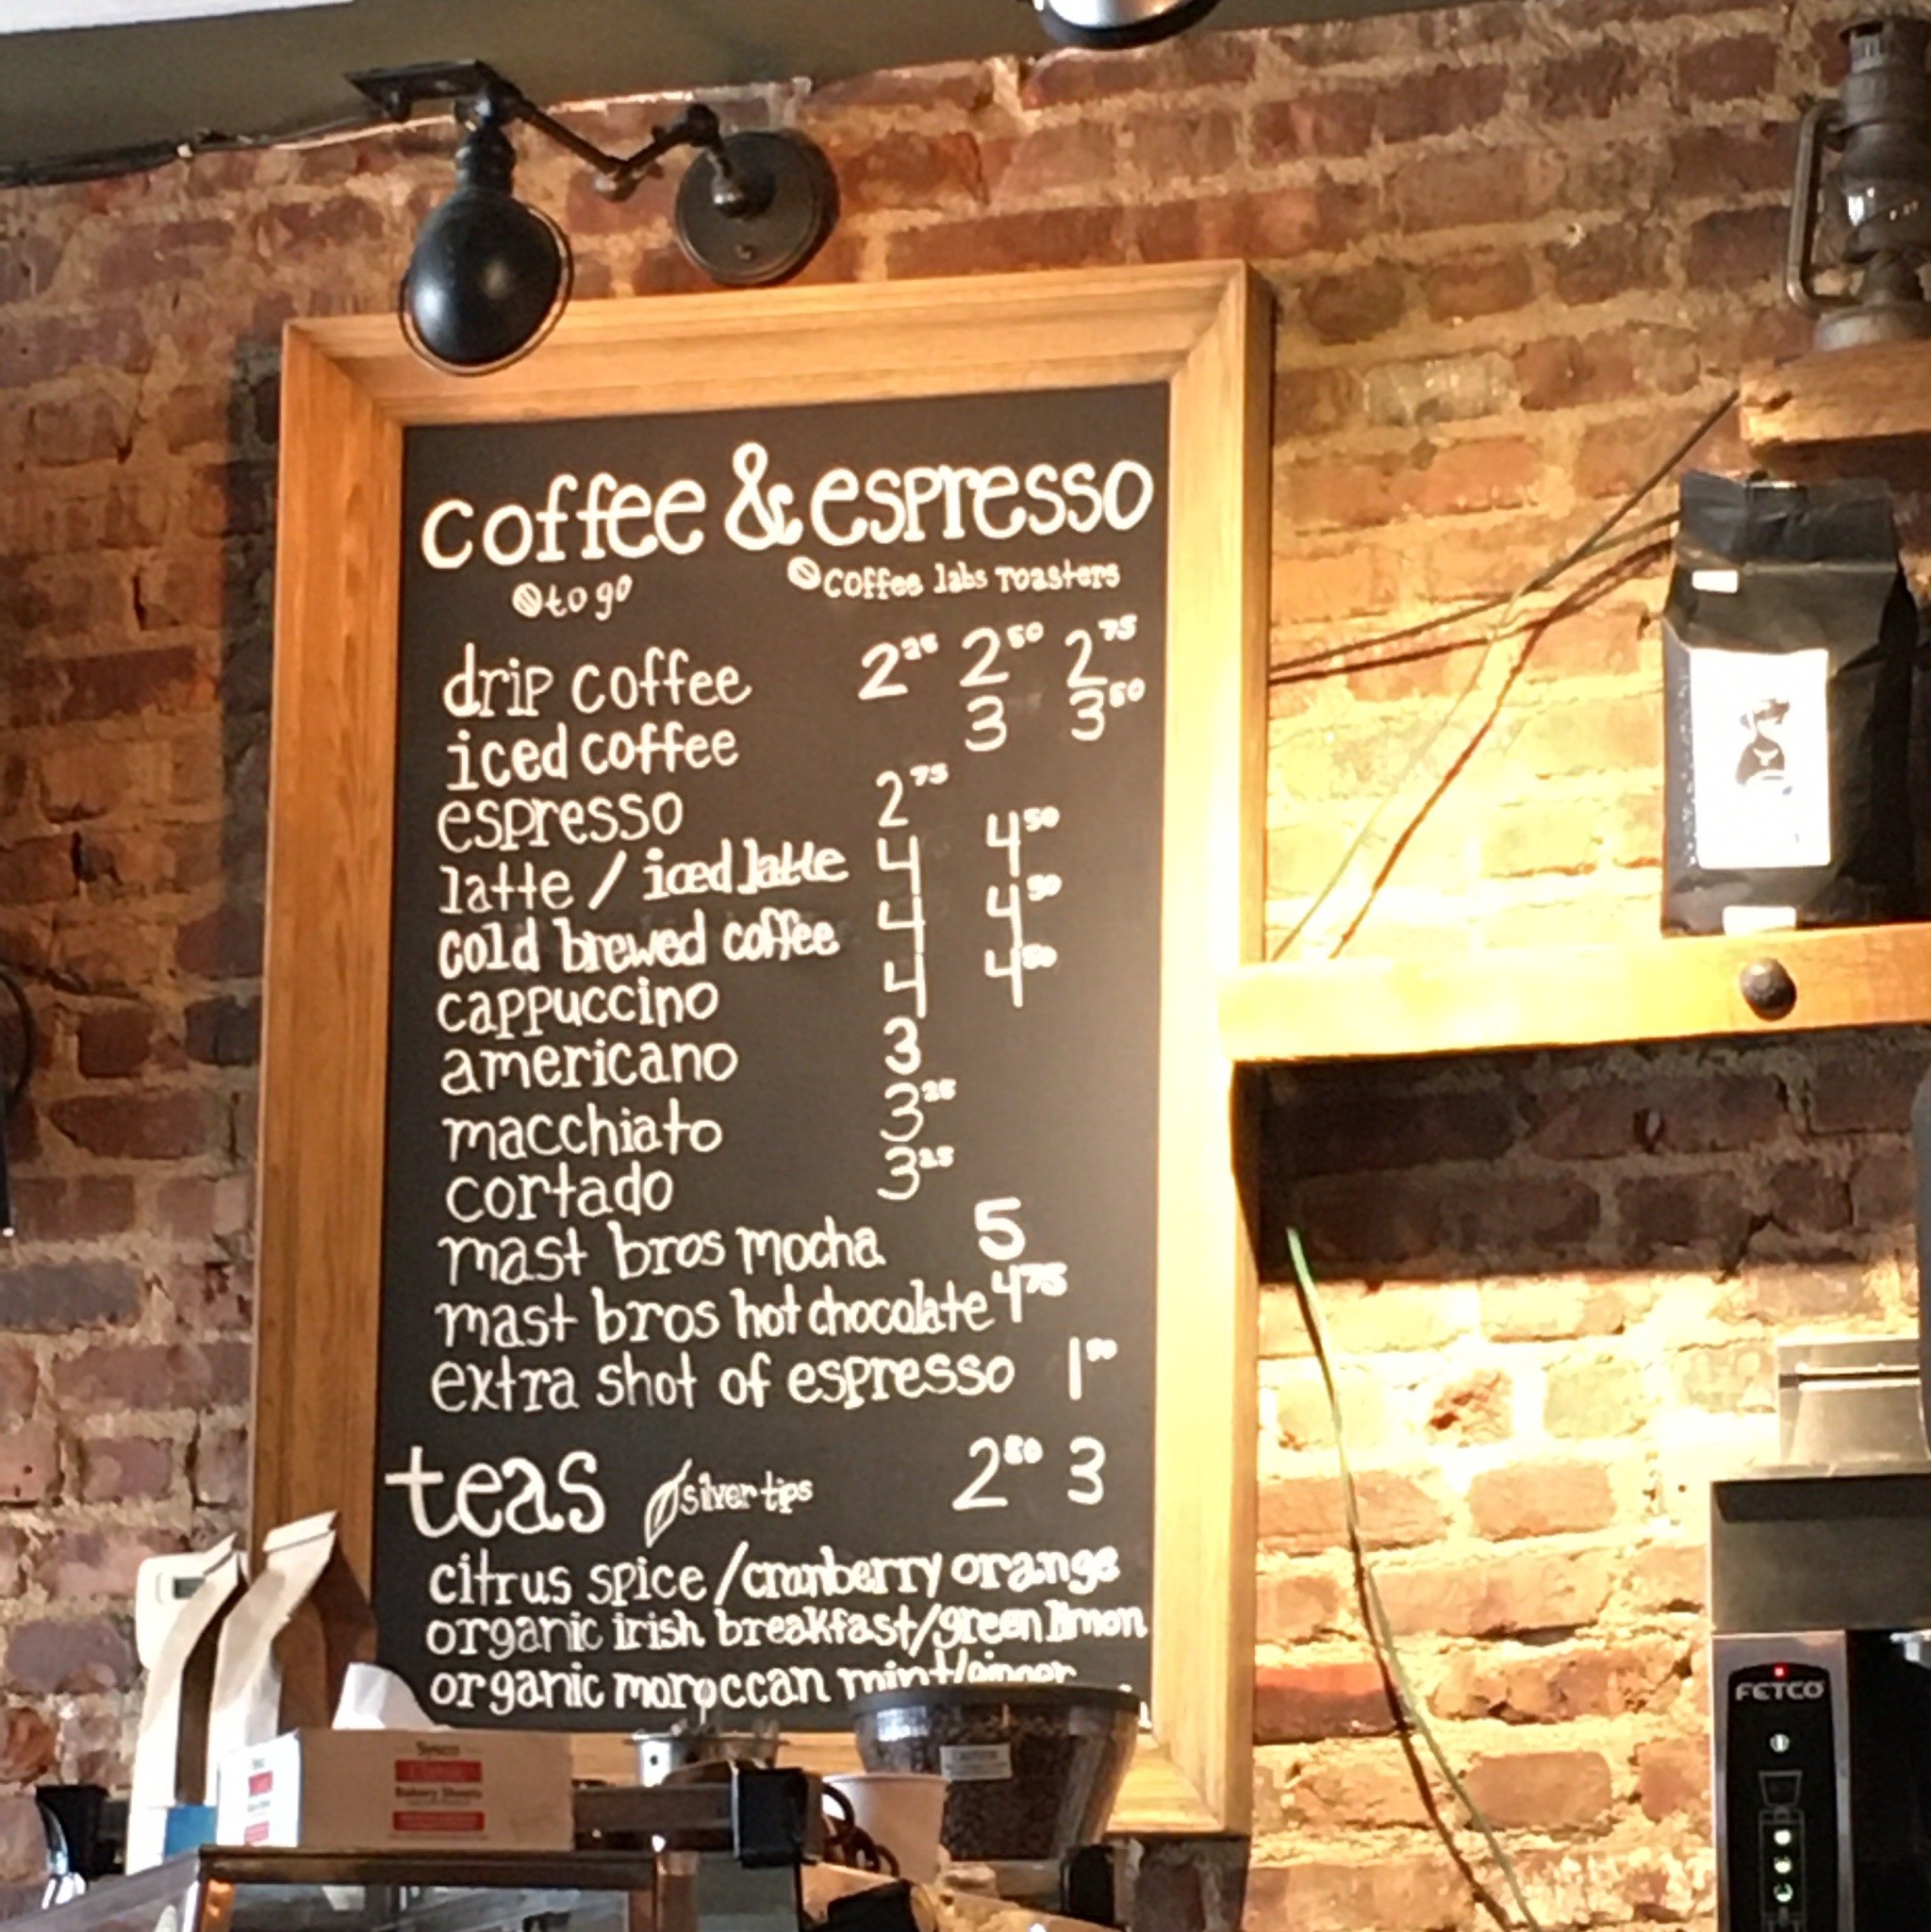 coffee & espresso
to go coffee labs roasters
drip coffee 2.25 2.50 2.75
iced coffee 3 3.50
espresso 2.75
latte / iced latte 4 4.50
cold brewed coffee 4 4.50
cappuccino 4 4.50
americano 3
macchiato 3.25
cortado 3.25
mast bros mocha 5
mast bros hot chocolate 4.75
extra shot of espresso 1.50
teas silver tips 2.50 3
citrus spice / cranberry orange
organic irish breakfast/green limon
organic moroccan mint/ginger
FETCO